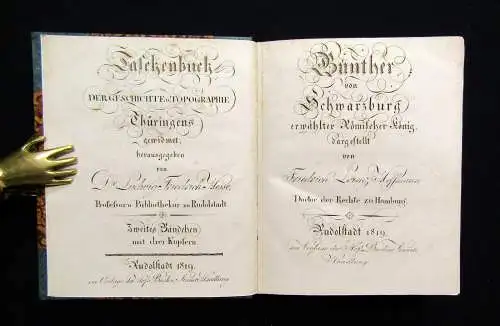 Taschenbuch
DER GESCHICHTE u. TOPOGRAPHIE
Thüringens
gewidmet,
herausgegeben
von
Dr. Ludwig Friedrich Hesse,
Professor u. Bibliothekar zu Rudolstadt.
Zweites Bändchen
mit drei Kupfern.
Rudolstadt 1819.
im Verlage der
Günther
von
Schwarzburg
erwählter Römischer König.
dargestellt
von
Friedrich Lorenz Hoffmann
Doctor der Rechte zu Hamburg.
Rudolstadt 1819.
im Verlage der
Handlung